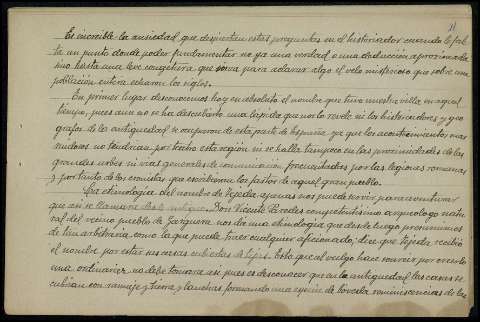 11
Es increible la ansiedad que despiertan estas preguntas en el historiador cuando le fal-
ta un punto donde poder fundamentar no ya una verdad o una deducción aproximada
sino hasta una leve congetura que sirva para aclarar algo el velo misterioso que sobre una
población entera echaron los siglos.
En primer lugar desconocemos hoy en absoluto el nombre que tuvo nuestra villa en aquel
tiempo, pues aun no se ha descubierto una lápida que nos lo revele ni los historiadores y geo-
grafos de la antiguedad se ocuparon de esta parte de España, ya que los acontecimientos mas
ruidosos no tendrian por teatro esta región ni se halla tampoco en las proximidades de las
grandes urbes ni vias generales de comunicación frecuentadas por las legiones romanas
y por tanto de los cronistas que escribieron los fastos de aquel gran pueblo.
La etimologia del nombre de Tejeda apenas nos puede servir para aventurar
que asi se llamara desde antiguo. Don Vicente Paredes competentisimo arqueologo natu-
ral del vecino pueblo de Gargüera nos da una etimologia que desde luego presumimos
de tan arbitraria como la que puede traer cualquier aficionado; dice que Tejeda recibió
el nombre por estar sus casas cubiertas de tejas. Esta que al vulgo hace sonreir por creerlo
una ordinariez, no debe tomarse asi, pues es desconocer que en la antiguedad las casas se
cubrian con ramaje y tierra y lanchas formando una especie de boveda reminiscencias de las